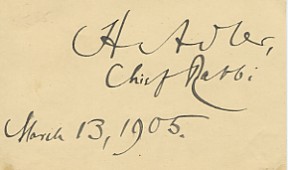 H. Adler,
Chief Rabbi
March 13, 1905.